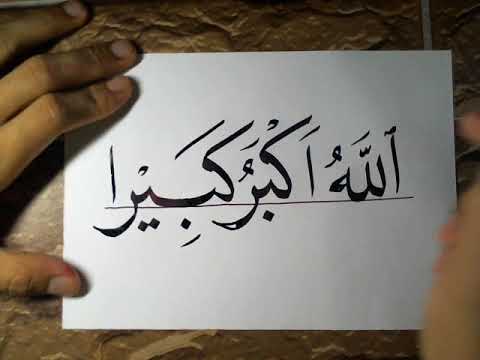 اَللَّهُ اَكْبَرُ كَبِيْرَا